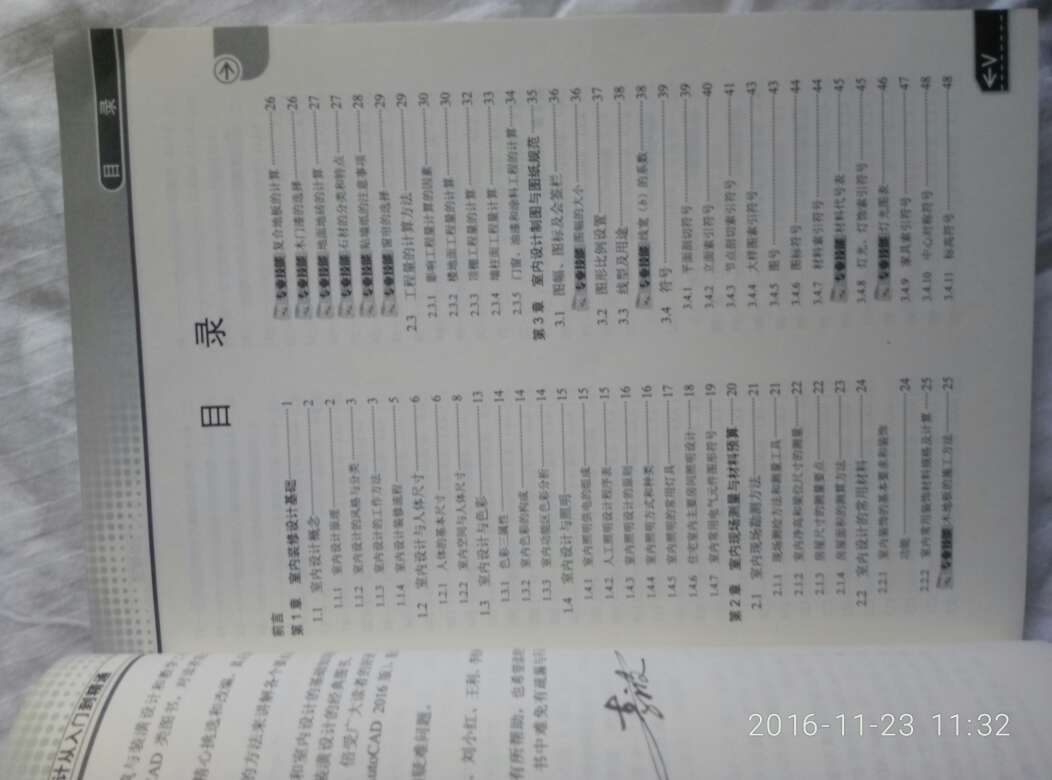 计从入门到精通
与装潢设计和教学
AD 类图书，
精心挑选和改编，
的方法来讲解各个
和室内设计的基础知
装潢设计的经典图书，
倍受广大读者的
utoCAD 2016 版)，
疑难问题。
、刘小红、王利、李
有所帮助，也希望读
书中难免有疏漏与
目 录
目 录
前言
第1章 室内装修设计基础 1
1.1 室内设计概念 2
1.1.1 室内设计原理 2
1.1.2 室内设计的风格与分类 3
1.1.3 室内设计的工作方法 3
1.1.4 室内设计装修流程 5
1.2 室内设计与人体尺寸 6
1.2.1 人体的基本尺寸 6
1.2.2 室内空间与人体尺寸 8
1.3 室内设计与色彩 13
1.3.1 色彩三属性 14
1.3.2 室内色彩的构成 14
1.3.3 室内功能区色彩分析 14
1.4 室内设计与照明 15
1.4.1 室内照明供电的组成 15
1.4.2 人工照明设计程序表 15
1.4.3 室内照明设计的原则 16
1.4.4 室内照明方式和种类 16
1.4.5 室内照明的常用灯具 17
1.4.6 住宅室内主要房间照明设计 18
1.4.7 室内常用电气元件图形符号 19
第2章 室内现场测量与材料预算 20
2.1 室内现场勘测方法 21
2.1.1 现场测绘方法和测量工具 21
2.1.2 室内净高和梁位尺寸的测量 22
2.1.3 房屋尺寸的测量要点 22
2.1.4 房屋面积的测算方法 23
2.2 室内设计的常用材料 24
2.2.1 室内装饰的基本要求和装饰
功能 24
2.2.2 室内常用装饰材料规格及计算 25
专业技能：木地板的施工方法 25
专业技能：复合地板的计算 26
专业技能：木门漆的选择 26
专业技能：地面地砖的计算 27
专业技能：石材的分类和特点 27
专业技能：贴墙纸的注意事项 28
专业技能：窗帘的选择 29
2.3 工程量的计算方法 29
2.3.1 影响工程量计算的因素 30
2.3.2 楼地面工程量的计算 30
2.3.3 顶棚工程量的计算 32
2.3.4 墙柱面工程量计算 33
2.3.5 门窗、油漆和涂料工程的计算 34
第3章 室内设计制图与图纸规范 35
3.1 图幅、图标及会签栏 36
专业技能：图幅的大小 36
3.2 图形比例设置 37
3.3 线型及用途 38
专业技能：线宽（b）的系数 38
3.4 符号 39
3.4.1 平面剖切符号 39
3.4.2 立面索引符号 40
3.4.3 节点剖切索引符号 41
3.4.4 大样图索引符号 43
3.4.5 图号 43
3.4.6 图标符号 44
3.4.7 材料索引符号 44
专业技能：材料代号表 45
3.4.8 灯光、灯饰索引符号 45
专业技能：灯光图表 46
3.4.9 家具索引符号 47
3.4.10 中心对称符号 48
3.4.11 标高符号 48
V
2016-11-23 11:32